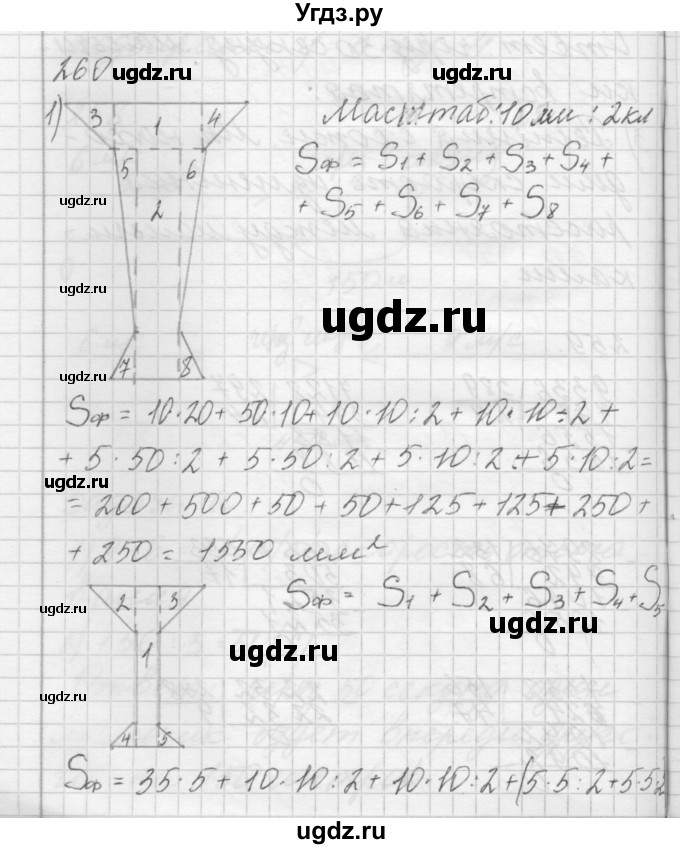 Угдз.ру
260
ugdz.ru
ugdz.ru
1)
3 1 4
Масштаб: 10 мм : 2 кл
5 6
2
7 8
Sф = S1 + S2 + S3 + S4 +
+ S5 + S6 + S7 + S8
ugdz.ru
ugdz.ru
ugdz.ru
ugdz.ru
Sф = 10·20 + 50·10 + 10·10:2 + 10·10:2 +
+ 5·50:2 + 5·50:2 + 5·10:2 + 5·10:2 =
ugdz.ru
= 200 + 500 + 50 + 50 + 125 + 125 + 250 +
+ 250 = 1550 мм²
2 3
1
4 5
Sф = S1 + S2 + S3 + S4 + S5
ugdz.ru
ugdz.ru
ugdz.ru
ugdz.ru
Sф = 35·5 + 10·10:2 + 10·10:2 + (5·5:2 + 5·5:2
ugdz.ru